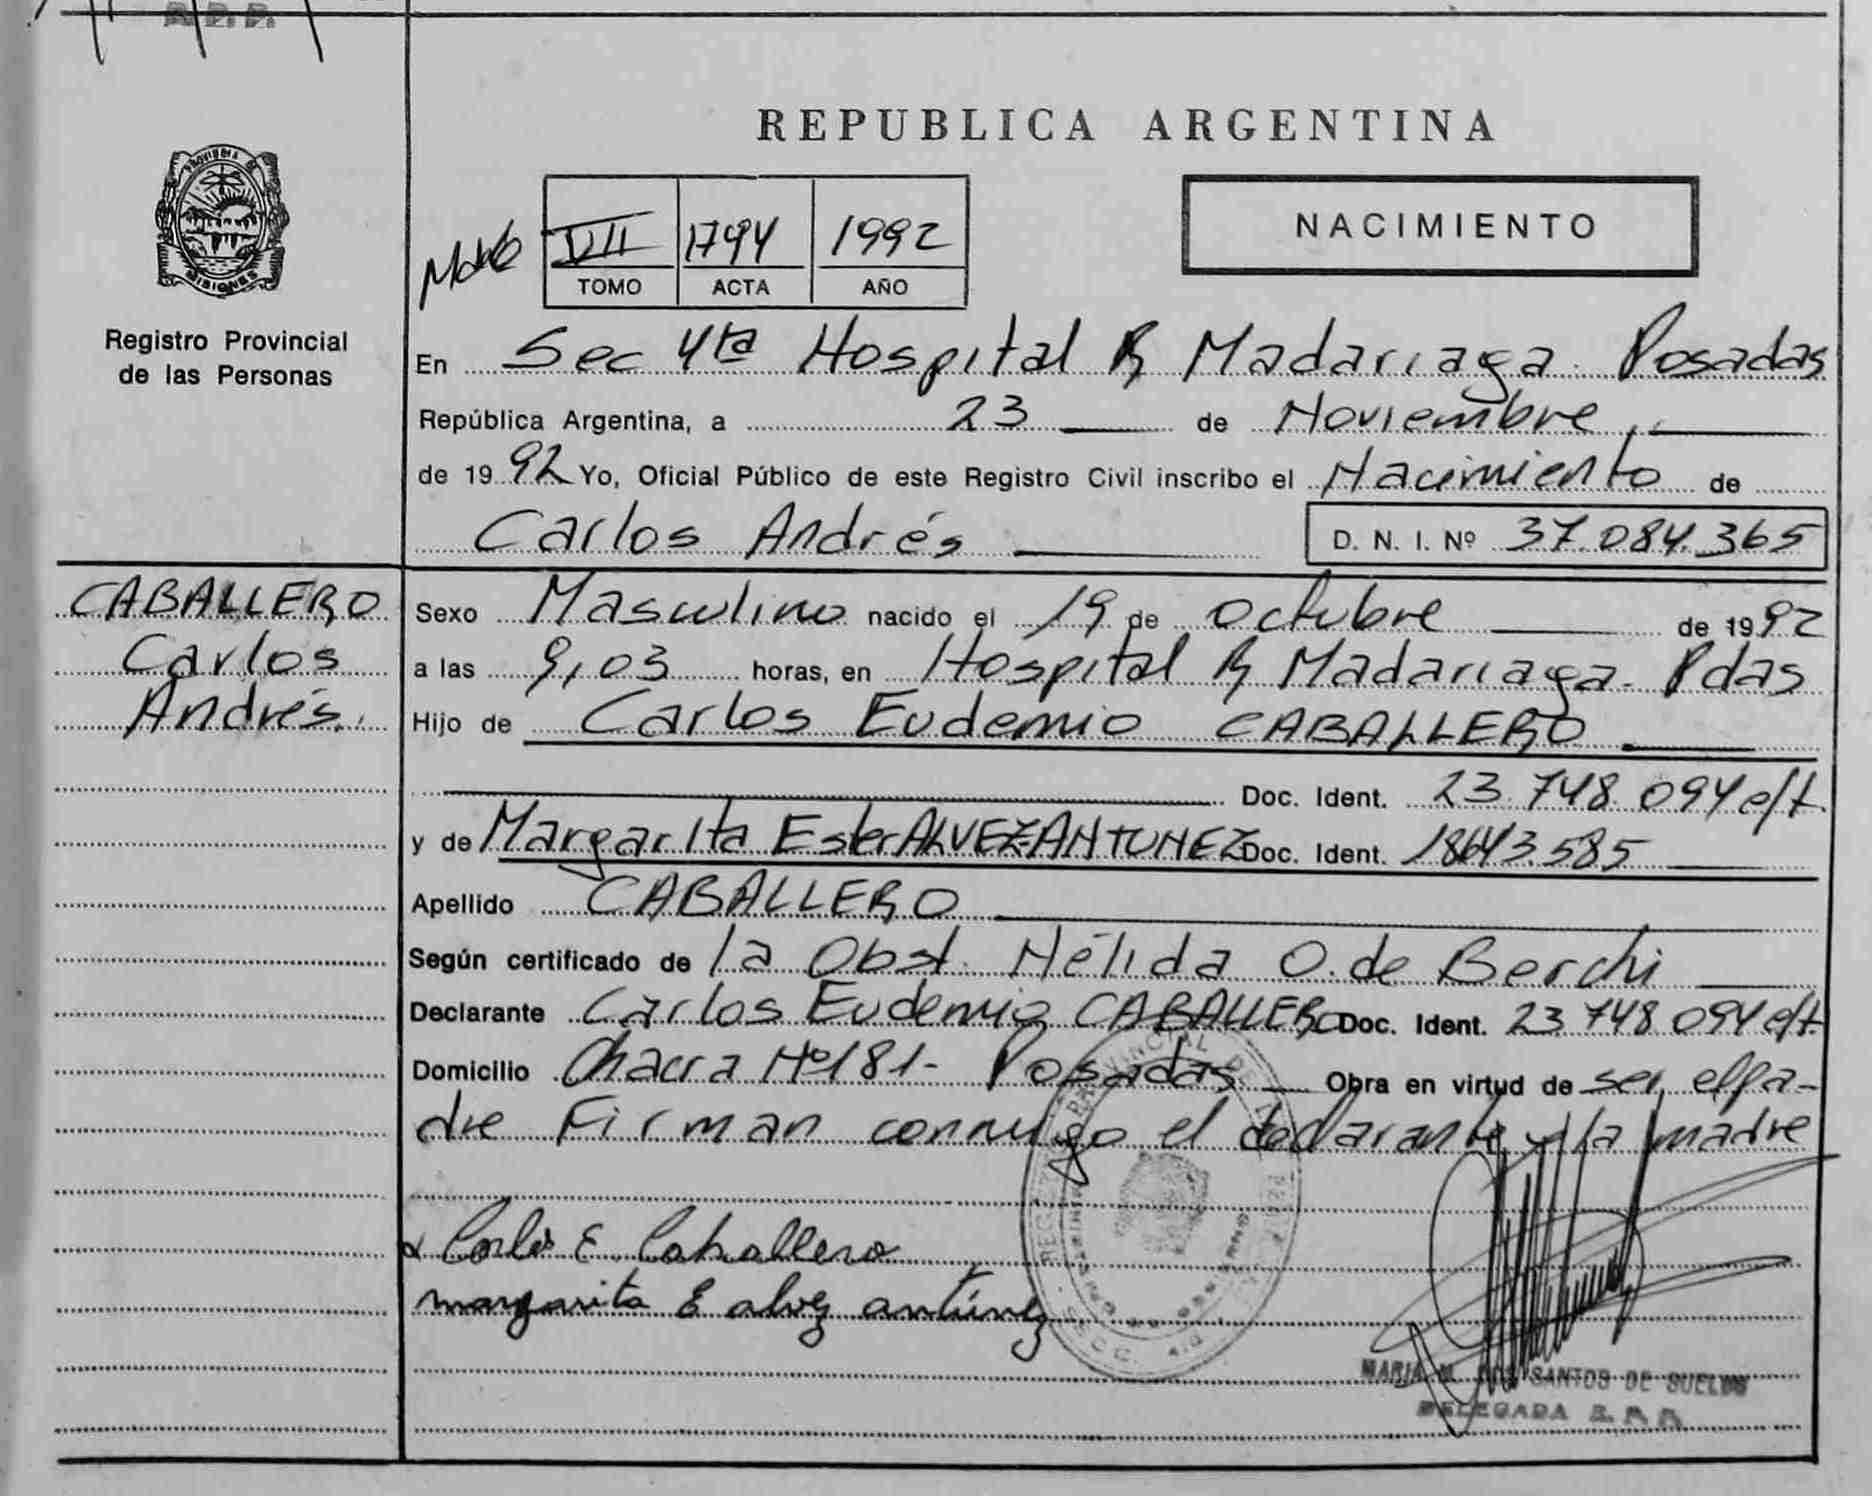 R. P. P.
REPUBLICA ARGENTINA
PROVINCIA DE MISIONES
Registro Provincial
de las Personas
VII 1794 1992
TOMO ACTA AÑO
NACIMIENTO
En Sec 4ta Hospital R Madariaga Posadas
República Argentina, a 23 de Noviembre
de 1992 Yo, Oficial Público de este Registro Civil inscribo el Nacimiento de
Carlos Andrés D. N. I. Nº 37.084.365
CABALLERO
Carlos
Andrés.
Sexo Masculino nacido el 19 de Octubre de 1992
a las 9,03 horas, en Hospital R Madariaga - Pdas
Hijo de Carlos Eudemio CABALLERO
Doc. Ident. 23.748.094 e/t.
y de Margarita Ester ALVEZ-ANTUNEZ Doc. Ident. 18643.585
Apellido CABALLERO
Según certificado de la Obst. Nélida O. de Berchi
Declarante Carlos Eudemio CABALLERO Doc. Ident. 23.748.094 e/t
Domicilio Chacra Nº 181- Posadas Obra en virtud de ser el pa-
dre Firman conmigo el declarante y la madre
Carlos E. Caballero
margarita E alvez antúnez
MARIA M. DOS SANTOS DE SUELDO
DELEGADA R. P. P.